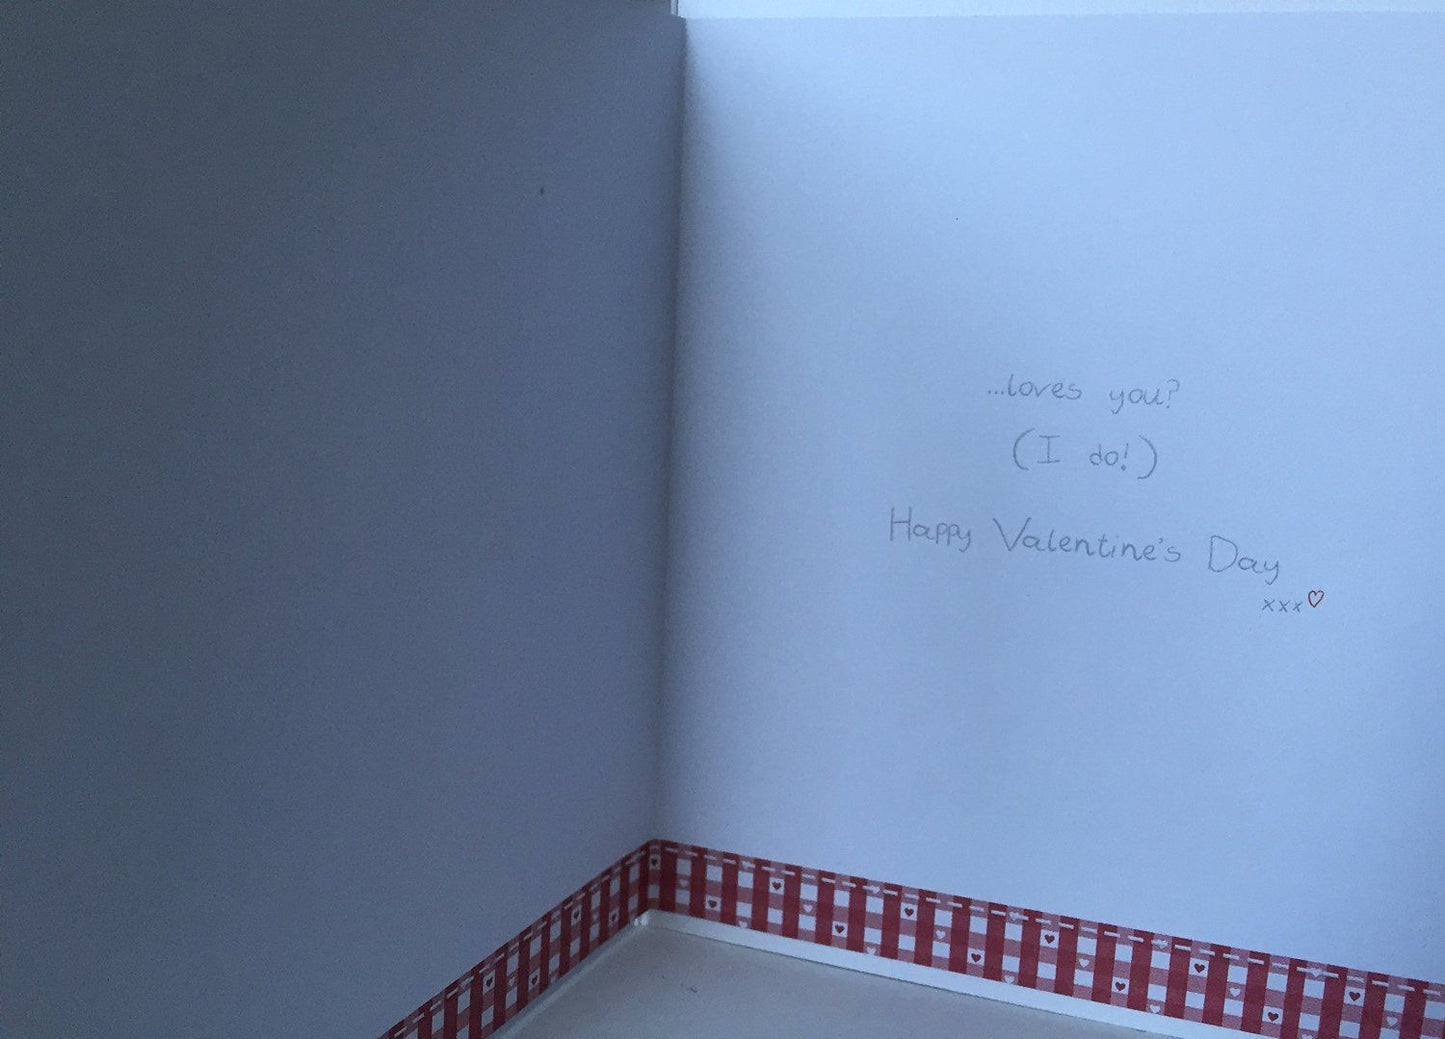 ...loves you?
(I do!)
Happy Valentine's Day
xxx♡